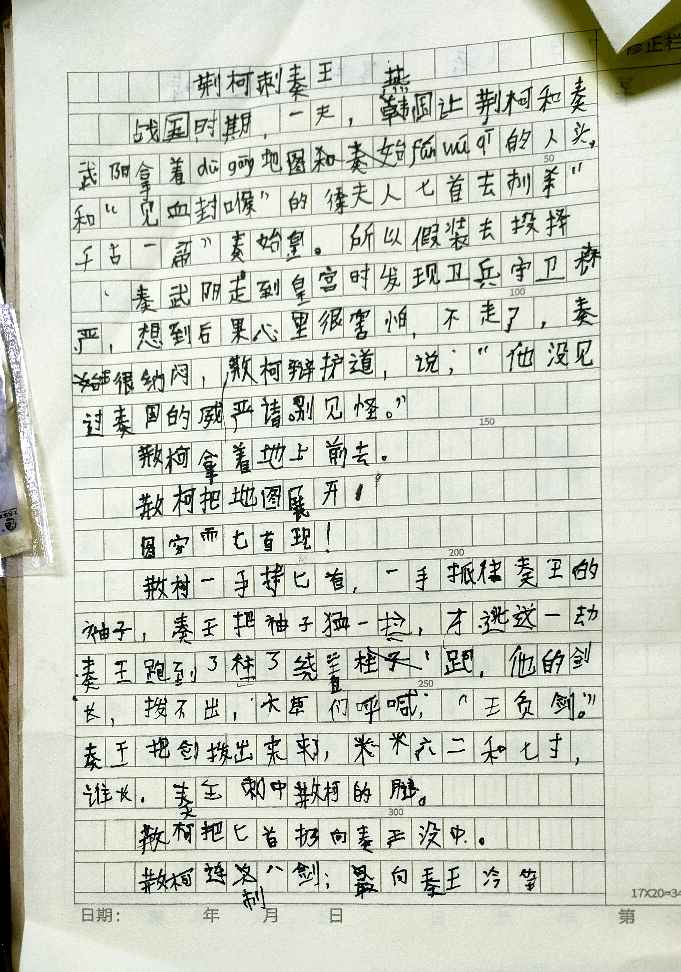 荆柯刺秦王
燕
战国时期，一天，韩国让荆柯和秦
武阳拿着dū gāng地图和秦始fán wū qī的人头，
和“见血封喉”的徐夫人七首去刺杀“
千古一帝”秦始皇。所以假装去投择
秦武阳走到皇宫时发现卫兵守卫森
严，想到后果心里很害怕，不走了，秦
始很纳闷，散柯辩护道，说；“他没见
过秦国的威严请别见怪。”
散柯拿着地上前去。
散柯把地图展开！
图穷而七首现！
散柯一手持匕首，一手抓住秦王的
袖子，秦王把袖子猛一拉，才逃过一劫
秦王跑到了柱了绕着柱子跑，他的剑
长，拨不出，大草们呼喊；“王负剑。”
秦王把剑拨出来来，米六二和七寸，
谁长．秦王刺中散柯的腿。
散柯把匕首扔向秦王没中。
散柯连八剑；最向秦王冷笑
刺
50
100
150
200
250
300
修正栏
17X20=34
日期： 年 月 日 第